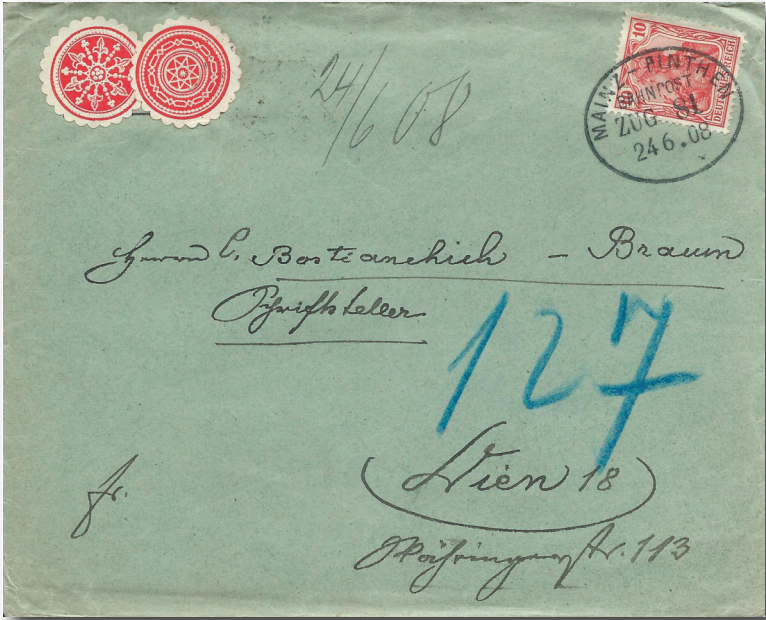 24/6 08
10
10
DEUTSCHES REICH
MAINZ - 
BAHNPOST
ZUG 81
24 6.08
Herrn C. Bostianchich - Braun
Schriftsteller
127
fr.
Wien 18
Währingerstr. 113